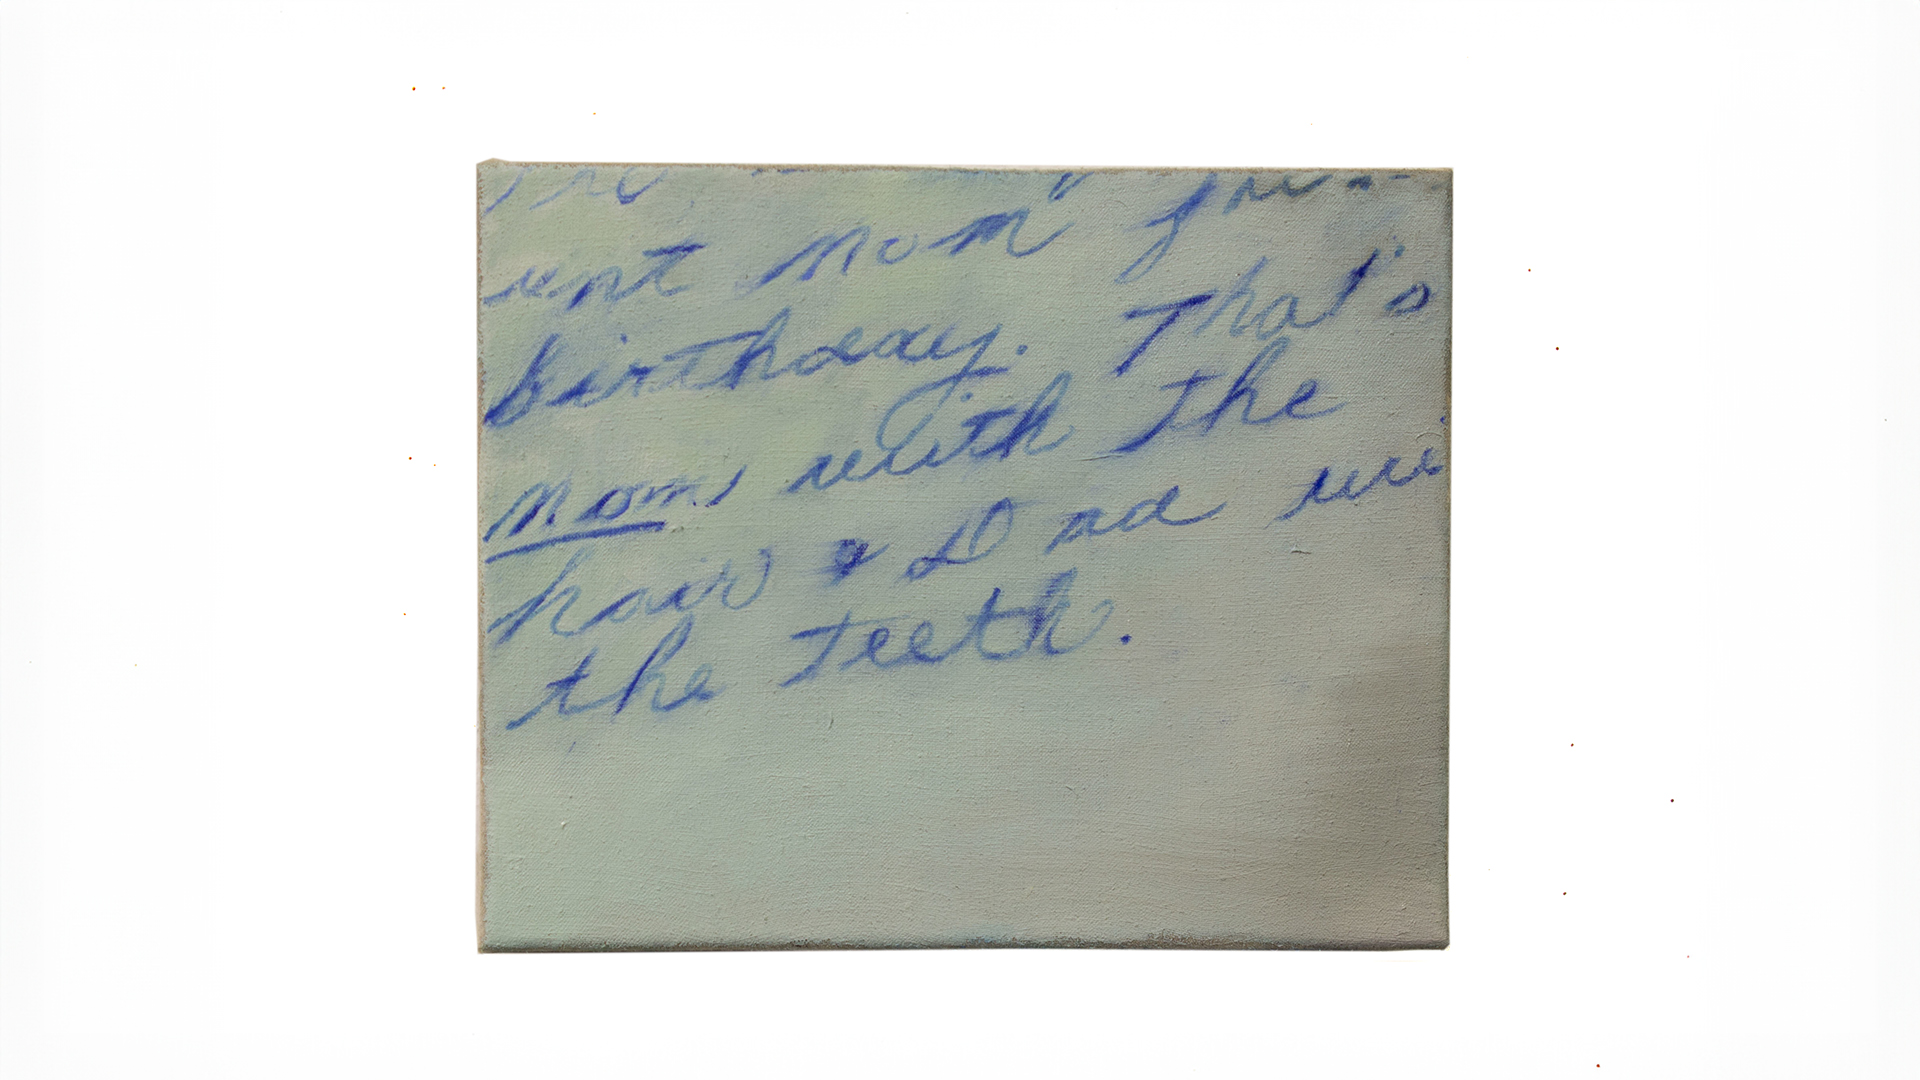 unt mom for
birthday. That's
Moms with the
hair & Dad wi
the teeth.